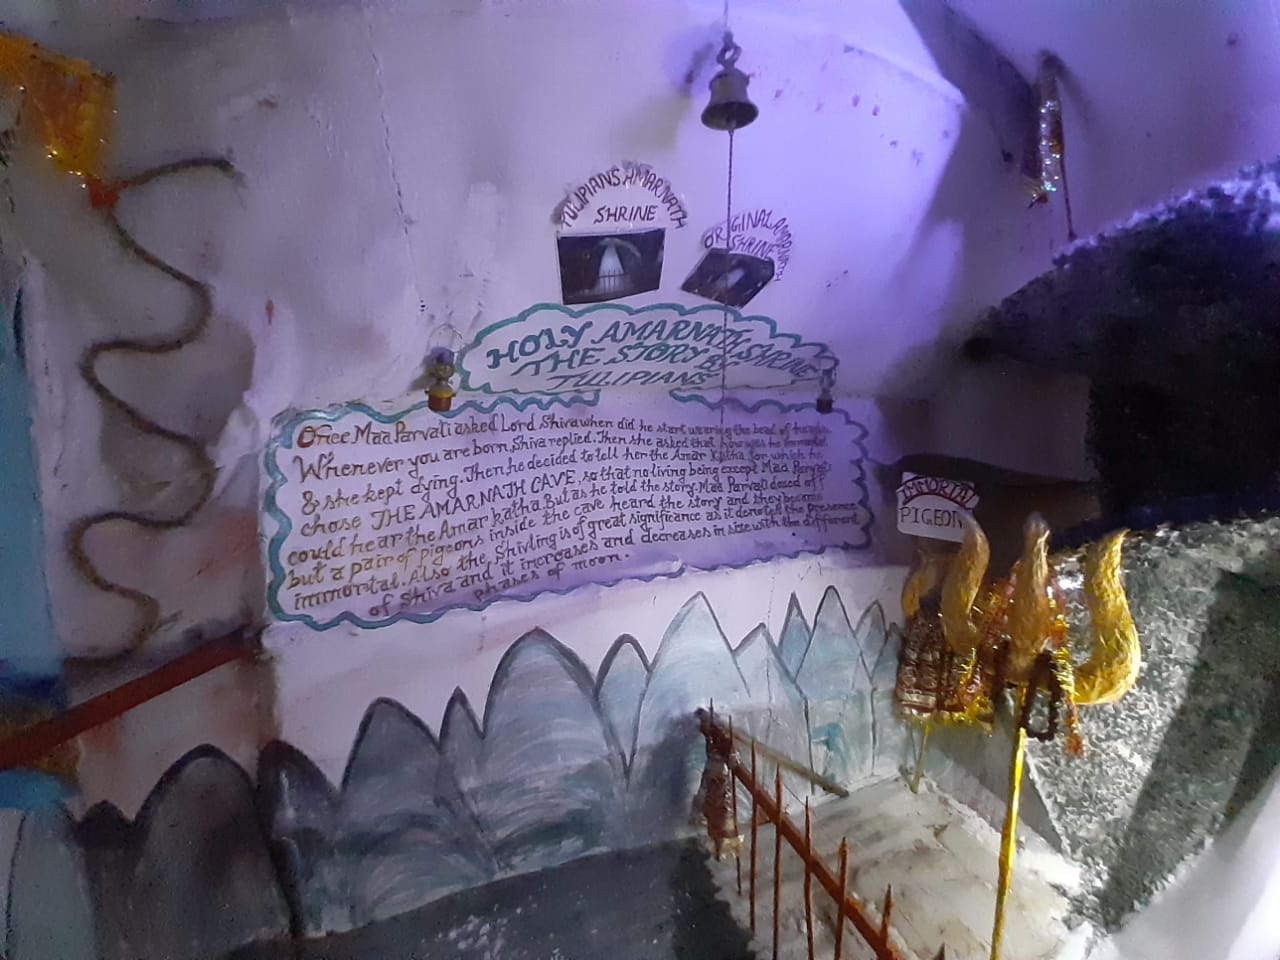 TULIPIANS AMARNATH
SHRINE
ORIGINAL AMARNATH
SHRINE
HOLY AMARNATH SHRINE
THE STORY BY
TULIPIANS
Once Maa Parvati asked Lord Shiva when did he start wearing the bead of
Whenever you are born, Shiva replied. Then she asked that how was he immortal
& she kept dying. Then he decided to tell her the Amar Katha for which he
chose THE AMARNATH CAVE, so that no living being except Maa Parvati
could hear the Amar katha. But as he told the story Maa Parvati dozed off
but a pair of pigeons inside the cave heard the story and they became
immortal. Also the Shivling is of great significance as it denotes the presence
of Shiva and it increases and decreases in size with the different
phases of moon.
IMMORTAL
PIGEON